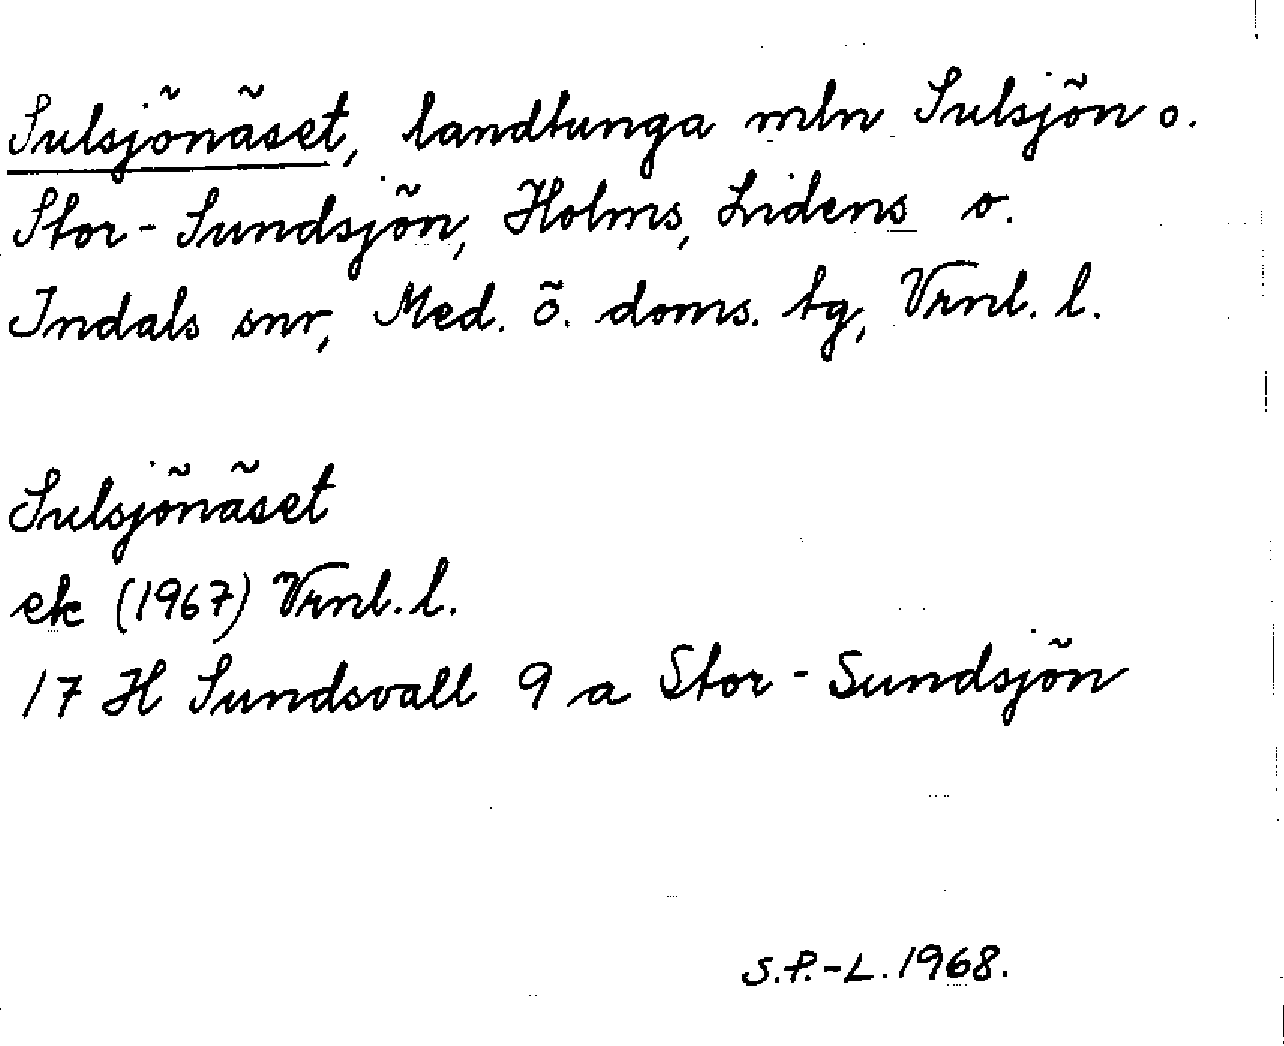 Sulsjönäset, landtunga mln Sulsjön o.
Stor-Sundsjön, Holms, Lidens o.
Indals snr, Med. ö. doms. tg, Vrnl. l.
Sulsjönäset
ek (1967) Vrnl. l.
17 H Sundsvall 9 a Stor-Sundsjön
S.P.-L. 1968.